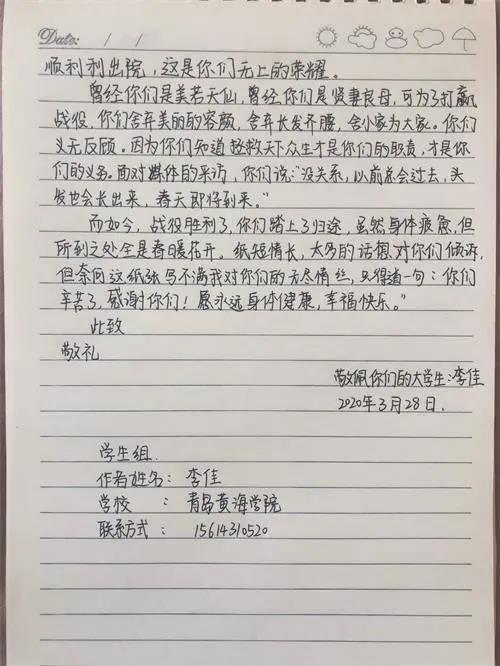 Date: / /
顺利利出院，这是你们无上的荣耀。
曾经你们是美若天仙，曾经你们是贤妻良母，可为了打赢
战役，你们舍弃美丽的容颜，舍弃长发齐腰，舍小家为大家。你们
义无反顾。因为你们知道拯救天下众生才是你们的职责，才是你
们的义务。面对媒体的采访，你们说："没关系，以前总会过去，头
发也会长出来，春天即将到来。"
而如今，战役胜利了，你们踏上了归途，虽然身体疲惫，但
所到之处全是春暖花开。纸短情长，太多的话想对你们倾诉，
但奈何这纸张写不满我对你们的无尽情丝，只得道一句：你们
辛苦了，感谢你们！愿永远身体健康，幸福快乐。"
此致
敬礼
敬佩你们的大学生：李佳
2020年3月28日.
学生组.
作者姓名：李佳
学校：青岛黄海学院
联系方式：15614310520